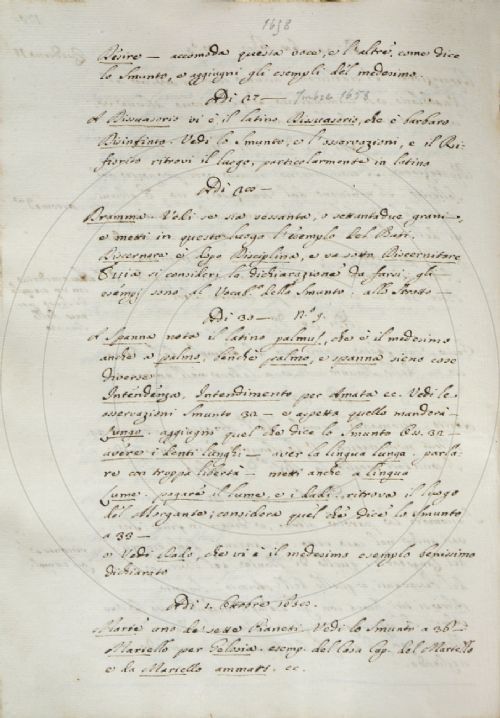 1658
Desire — accomoda questa voce, e l'altre, come dice
lo Smunto, e aggiugni gli esempli del medesimo.
Adi 27 —
A Dissuasorio vi è il latino Dissuasorio, che è barbaro
Disinfinto. Vedi lo Smunto, e l'osservazioni, e il Ri-
fiorito ritrovi il luogo, particolarmente in latino
Adi
Dramma. Veli se sia sessanta, o settantadue grani,
e metti in questo luogo l'esemplo del
Discernere è dopo Disciplina, e va sotto Discernitore
si consideri la dichiarazione da farsi, gli
esempj sono al Vocab.º dello Smunto. allo
Adi 30 — N.º 9.
A Spanna nota il latino palmus, che è il medesimo
anche a palmo, benchè palmo, e spanna sieno cose
diverse
Intendenza, Intendimento per Amata ec. Vedi le
osservazioni Smunto 32 — e aspetta quello manderà
Lungo. aggiugni quel che dice lo Smunto 32 —
avere i denti lunghi — aver la lingua lunga. parla-
re con troppa libertà — metti anche a lingua
Lume. pagare il lume, e i dadi. ritrova il luogo
del Morgante, considera quel che dice lo Smunto
a 33 —
o Vedi Dado, che vi è il medesimo esemplo benissimo
dichiarato
Adi 1. Ottobre
Marte uno de sette Pianeti. Vedi lo Smunto a 36 —
Martello per Gelosia. esemp. del Casa Cap. del Martello
e da Martello ammart. ec.